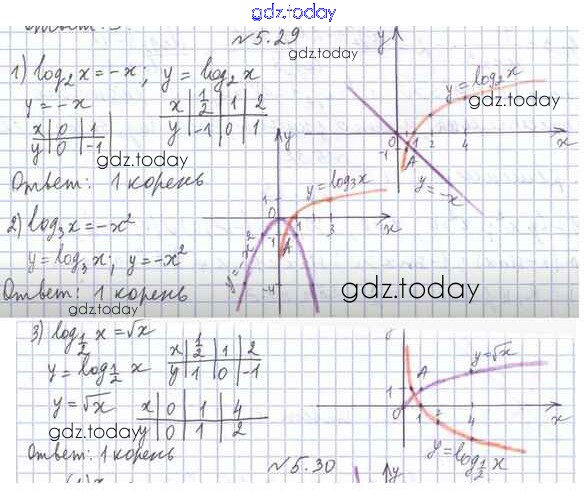 gdz.today
№5.29
gdz.today
1) log₂x = -x; y = log₂x
y = -x
x | 0 | 1
y | 0 | -1
x | 1/2 | 1 | 2
y | -1 | 0 | 1
gdz.today
Ответ: 1 корень
y
y = log₂x
gdz.today
0 1 2 4 x
-1
A
y = -x
2) log₃x = -x²
y = log₃x; y = -x²
Ответ: 1 корень
y
1
y = log₃x
0
3 x
A
y = -x²
-4
gdz.today
3) log½ x = √x
y = log½ x
x | 1/2 | 1 | 2
y | 1 | 0 | -1
y = √x
x | 0 | 1 | 4
y | 0 | 1 | 2
gdz.today
Ответ: 1 корень
y = √x
A
0 1 2 4 x
y = log½ x
№5.30
y